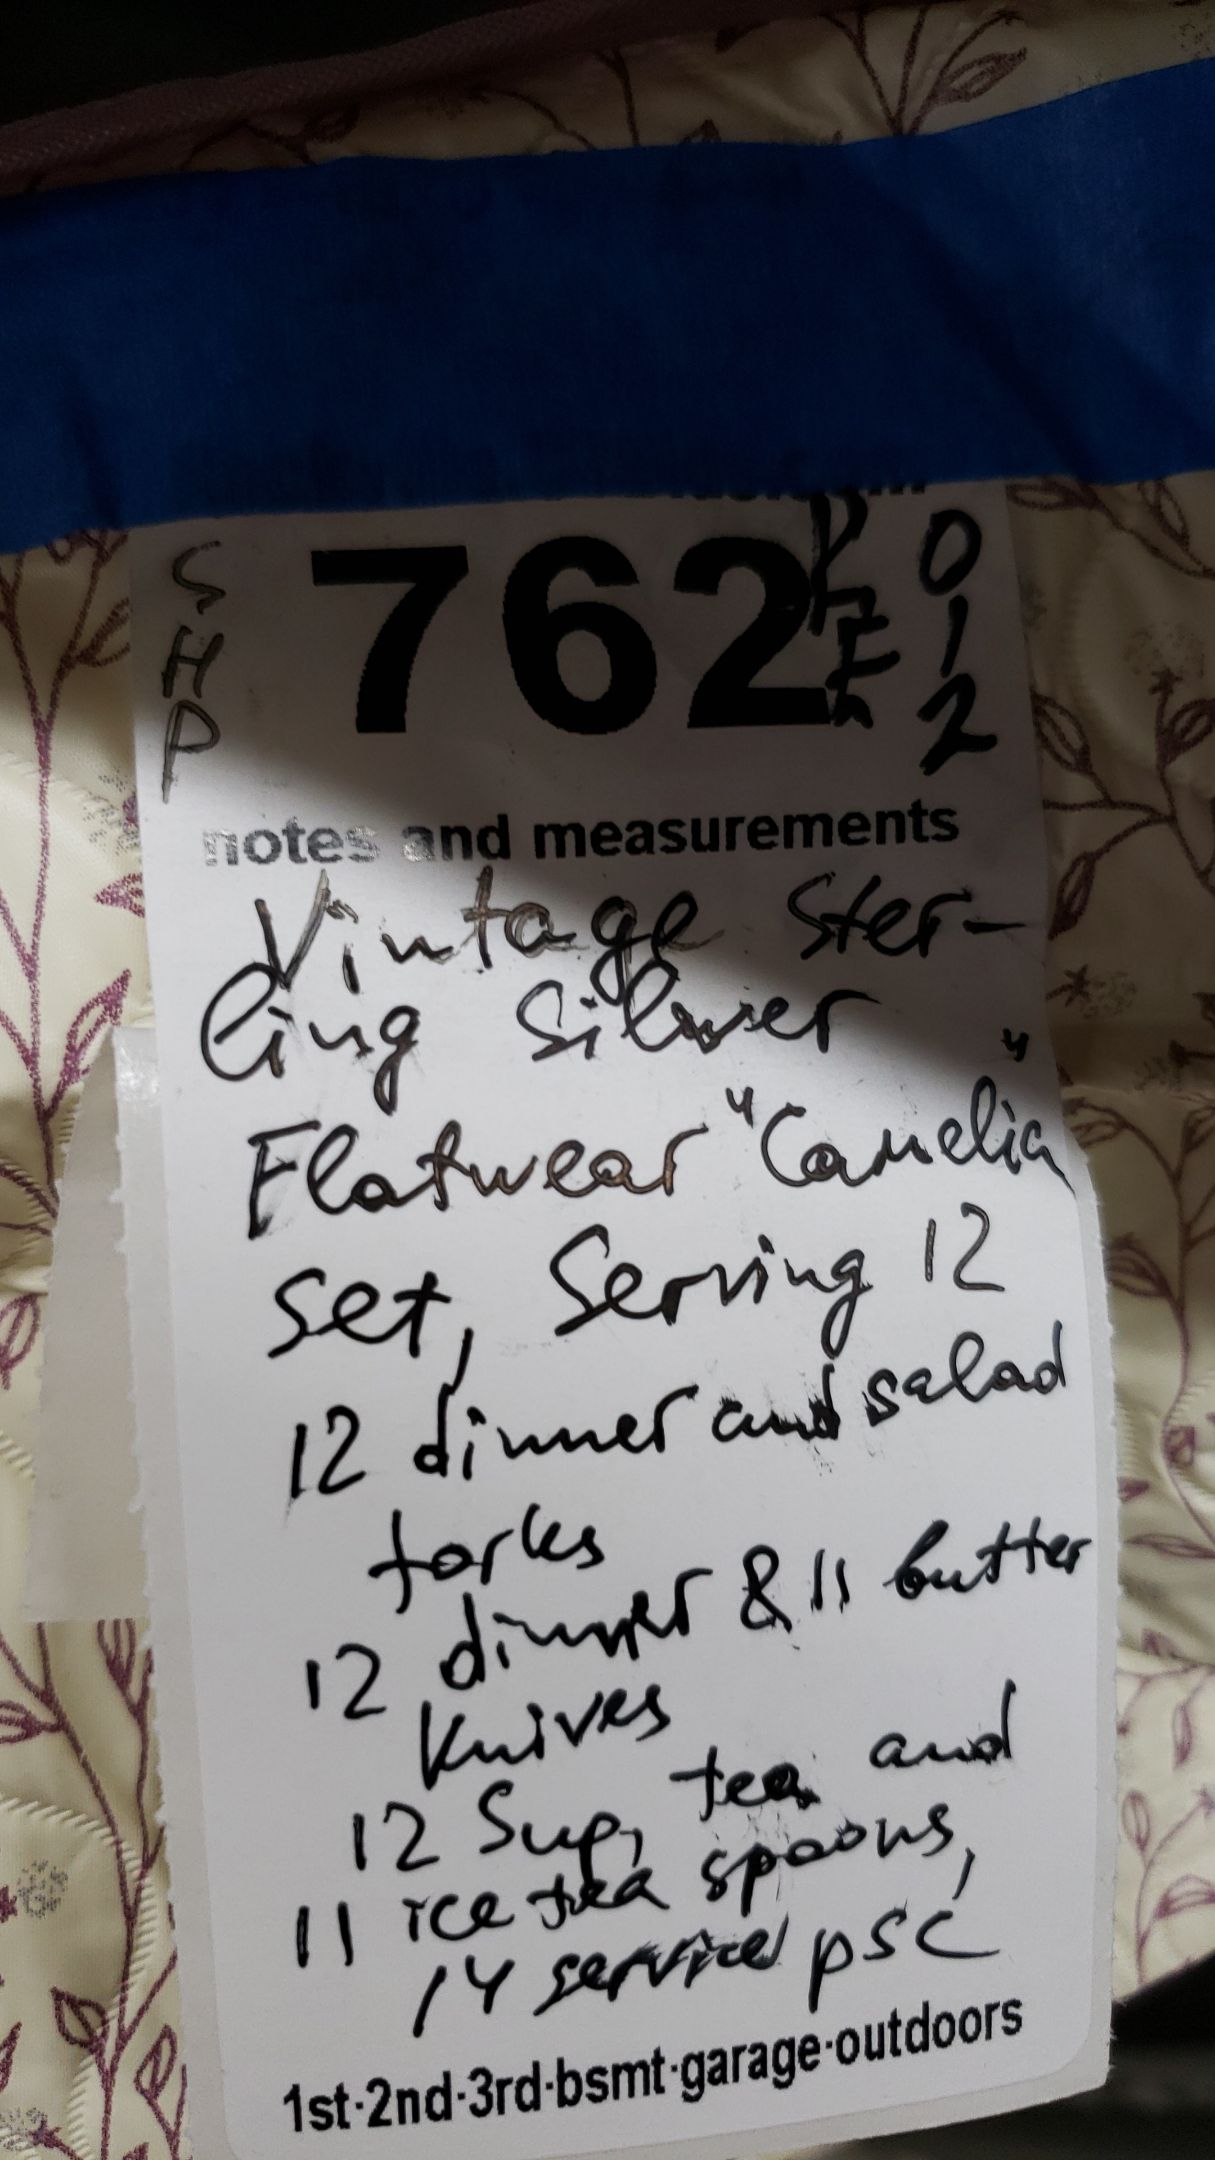 S
H
P
762
0
1
2
notes and measurements
Vintage Ster-
ling Silver
Flatwear "Camelia"
set, Serving 12
12 dinner and salad
forks
12 dinner & 11 butter
knives
12 Sup, tea and
11 ice tea spoons,
14 service psc
1st·2nd·3rd·bsmt·garage·outdoors